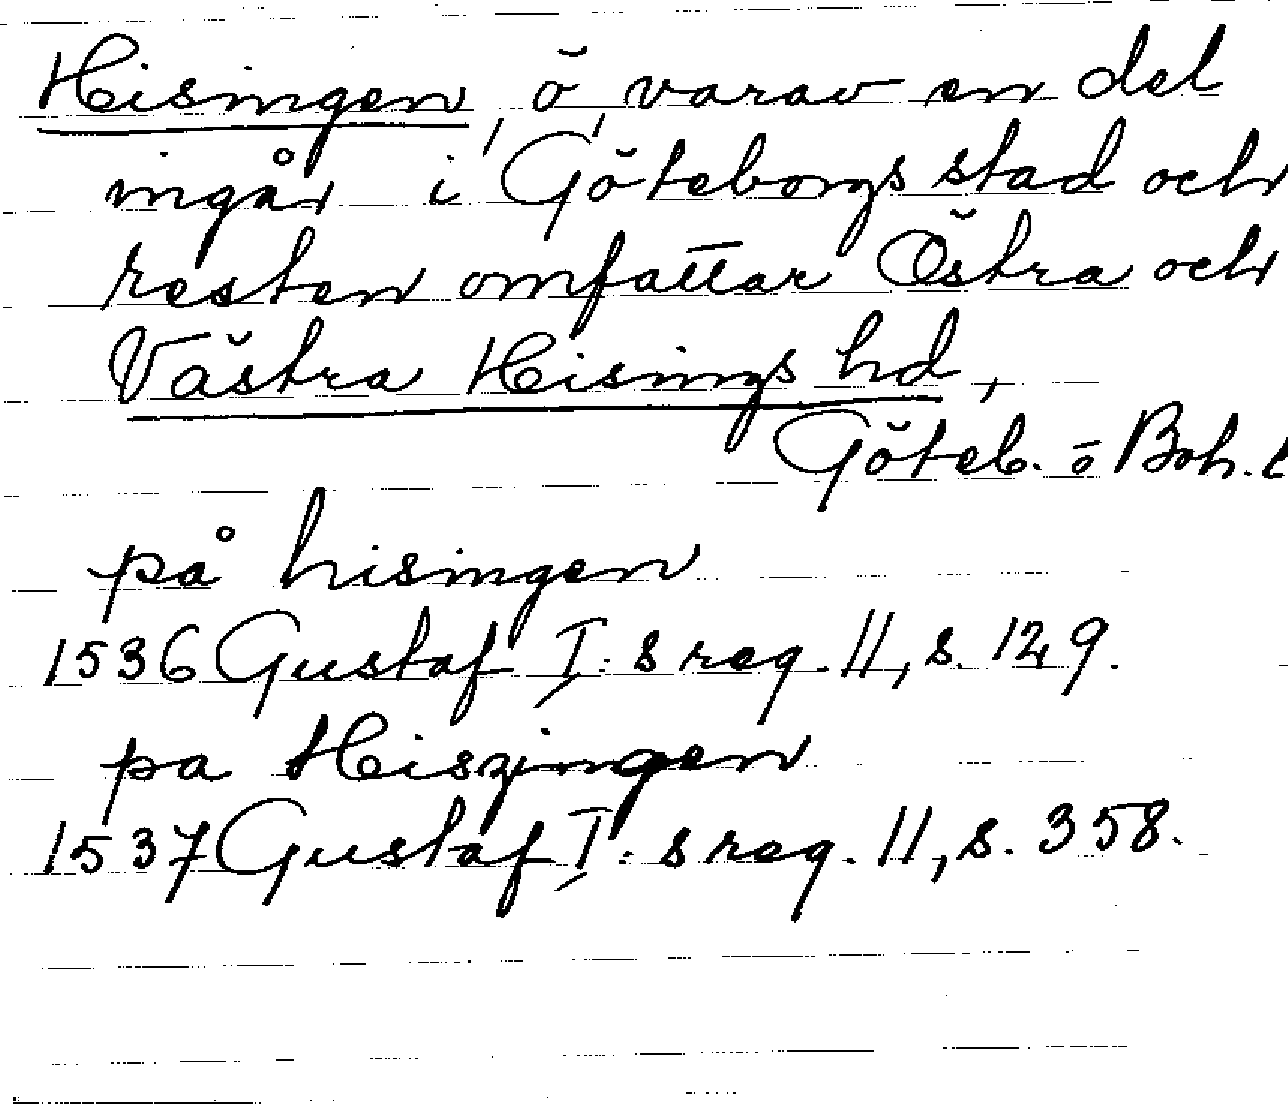 Hisingen, ö, varav en del
ingår i Göteborgs stad och
resten omfattar Östra och
Västra Hisings hd,
Göteb. o Boh. l
på hisingen
1536 Gustaf I:s reg. 11, s. 129.
pa Hiszingen
1537 Gustaf I:s reg. 11, s. 358.